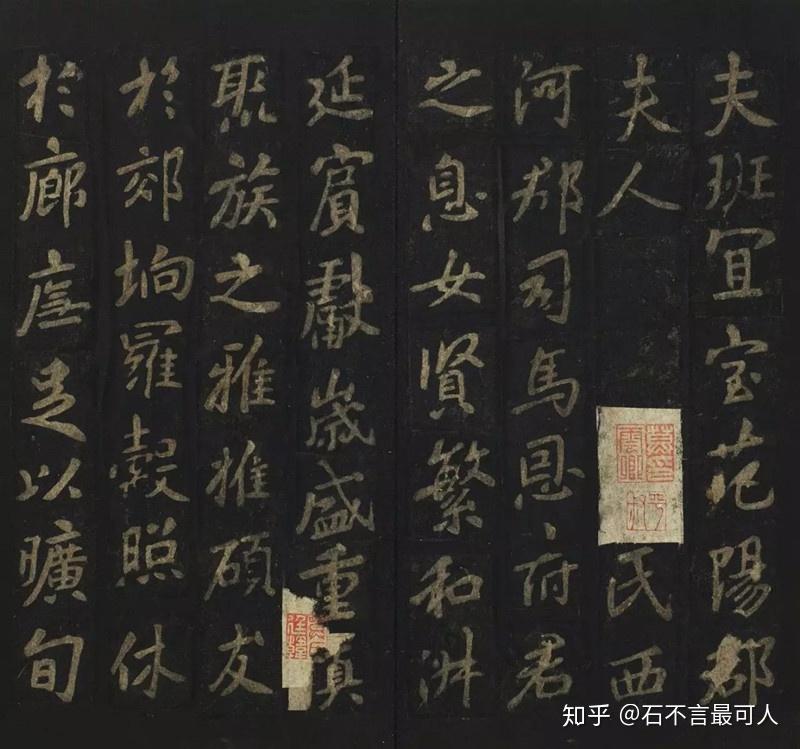 夫班冝室范陽郡
夫人氏西
河郡司馬恩府君
之息女賢繁和
延賓獻歲盛重慎
聚族之雅推碩友
於郊坰羅縠照休
於廊廡足以曠旬
知乎 @石不言最可人